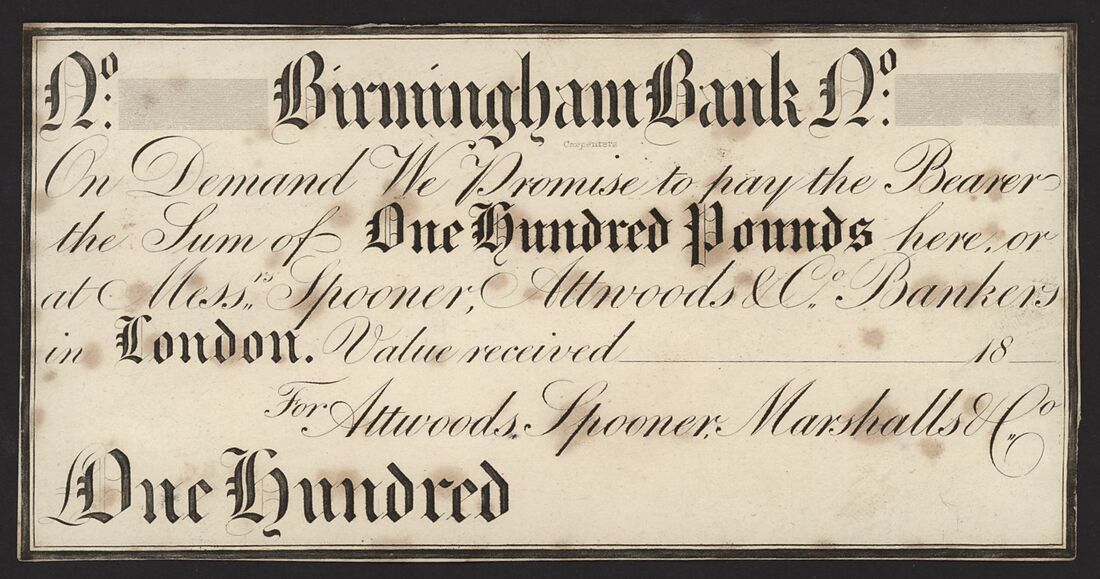 Nº: Birmingham Bank Nº:
Carpenters
On Demand We Promise to pay the Bearer
the Sum of One Hundred Pounds here, or
at Messrs Spooner, Attwoods & Co. Bankers
in London. Value received 18
For Attwoods, Spooner, Marshalls & Co
One Hundred